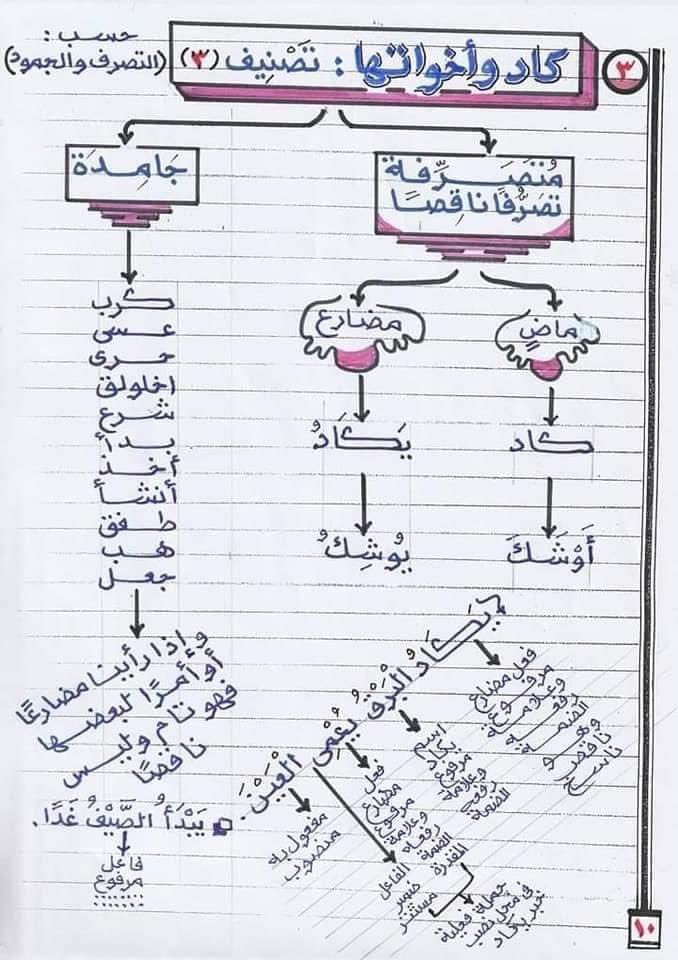 ٣
كاد وأخواتها : تَصْنِيف (٣)
حسب :
(التصرف والجمود)
مُتَصَرِّفة
تصَرُّفًا ناقِصًا
جَامِدَة
ماضٍ
مضارع
كاد
يَكَادُ
أَوْشَكَ
يُوشِكُ
كرب
عسى
حرى
اخلولق
شرع
بدأ
أخذ
أنشأ
طفق
هب
جعل
وإذا رأينا مضارعًا
أو أمرًا لبعضها
فهو تام وليس
ناقصًا
يَبْدَأُ الصَّيْفُ غَدًا.
فاعل
مرفوع
يَكَادُ الْبَرْقُ يُعْمِي الْعَيْنَ.
فعل مضارع
مرفوع
وعلامة
رفعه
الضمة
وهو
ناقص
ناسخ
اسم
يكاد
مرفوع
وعلامة
رفعه
الضمة
فعل
مضارع
مرفوع
وعلامة
رفعه
الضمة
المقدرة
الفاعل
ضمير
مستتر
مفعول به
منصوب
جملة فعلية
في محل نصب
خبر يكاد
١٠